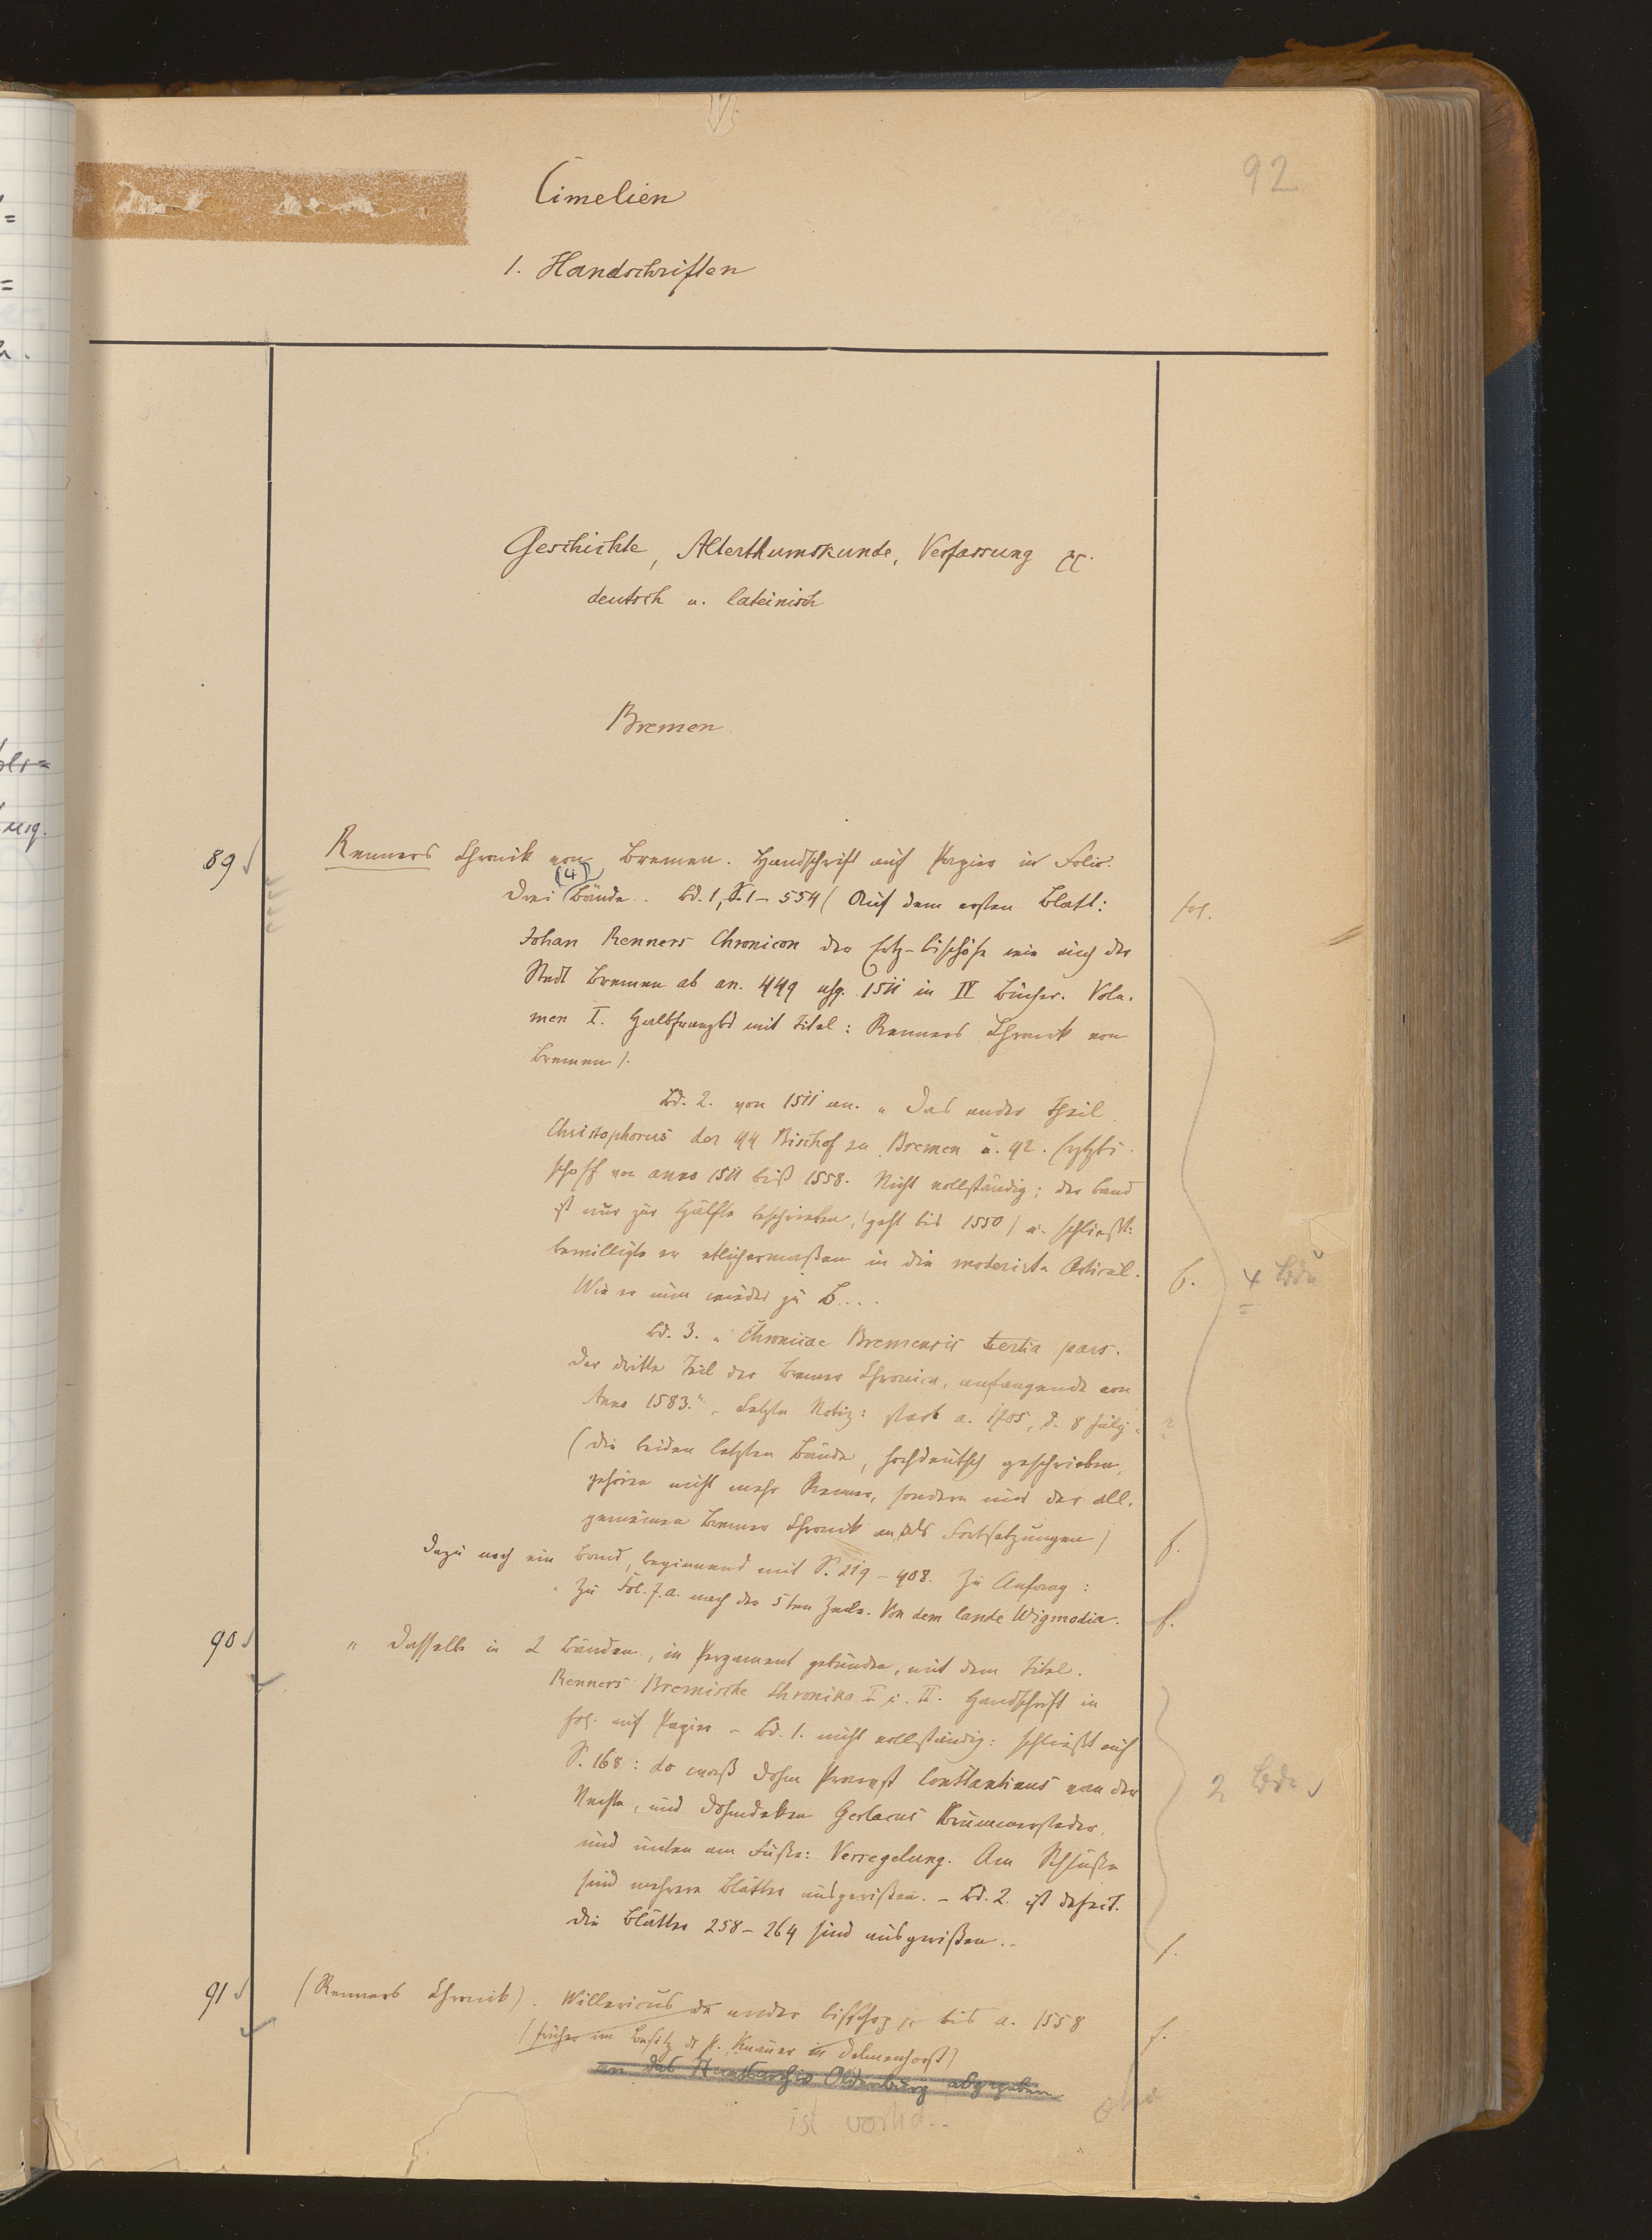 92
Cimelien
1. Handschriften
Geschichte, Alterthumskunde, Verfassung
deutsch u. lateinisch
Bremen
89 Renners Chronik von Bremen. Handschrift auf Papier in Folio.
(4)
Drei Bände. Bd. 1, S. 1–554 (Auf dem ersten Blatt: fol.
Johan Renners Chronicon der Ertz-bischöfe wie auch der
Stadt Bremen ab an. 449 usq. 1511 in IV Bücher. Volu-
men I. Halbfranzbd mit Titel: Renners Chronik von
Bremen).
Bd. 2. von 1511 an. „Das ander Theil
Christophorus der 44 Bischof zu Bremen u. 42.
schoff von anno 1511 biß 1558. Nicht vollständig; der Band
ist nur zur Hälfte beschrieben, (geht bis 1550) u. schließt:
bewilligte er etlichermaßen in die Articul. f. 4 Bde
Wie er nun wieder zu B....
Bd. 3. „Chronicae Bremensis tertia pars.
Der dritte Teil der Bremer Chronica, anfangende von
Anno 1583.“ – Letzte Notiz: starb a. 1705, d. 8 July.
(Die beiden letzten Bände, hochdeutsch geschrieben,
gehören nicht mehr Renner, sondern nur der all-
gemeinen Bremer Chronik an als Fortsetzungen) f.
Dazu noch ein Band, beginnend mit S. 219–408. Zu Anfang:
„Zu Fol. 7.a. nach der 5ten Zeile. Von dem lande Wigmodia. f.
90 „ Dasselbe in 2 Bänden, in Pergament gebunden, mit dem Titel.
Renners Bremische Chronika I u. II. Handschrift in
fol. auf Papier – Bd. 1. nicht vollständig: schließt auf
S. 168: do waß Dohm Provest Constantinus van der
und Domdeken Gerlacus 2 Bde
und unten am Fuße: Verregelung. Am Schluße
sind mehrere Blätter ausgerißen. – Bd. 2. ist defect.
Die Blätter 258–264 sind ausgerißen. f.
91 (Renners Chronik). Willericus de ander bisschop bis a. 1558 f.
(früher im Besitz in Delmenhorst)
an das Staatsarchiv Oldenburg abgegeben.
ist vorhd.